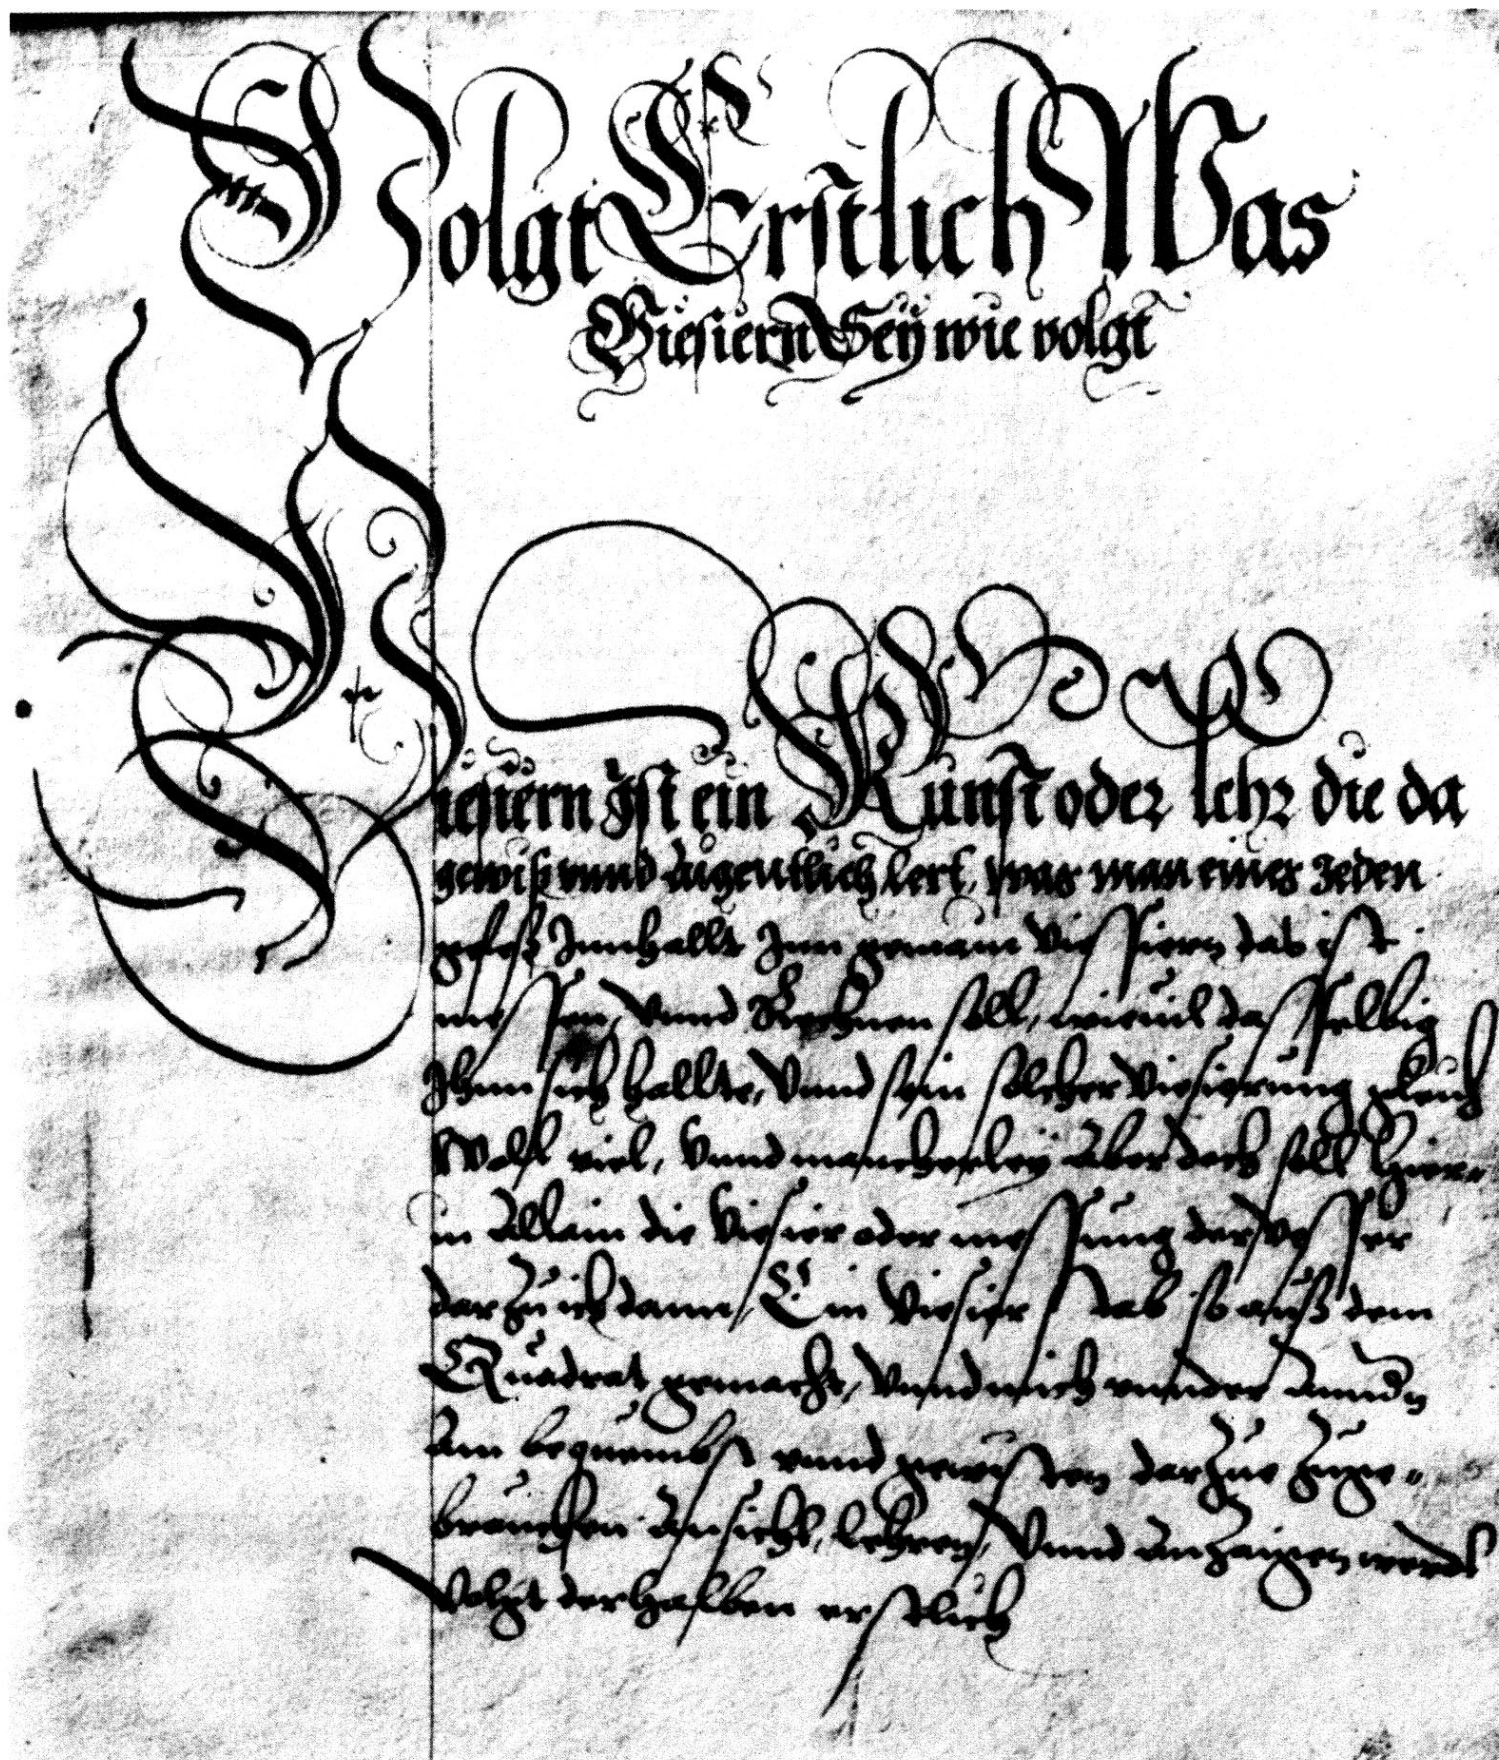 Volgt Erstlich Was
Viesiern Sey wie volgt
Viesiern Ist ein Kunst oder lehr die da
gewiß vnnd aigentlich lert, was man eines Jeden
gefeß Innhallt Inn gemain viessiern das ist
messen, vnnd Rechnen soll, wieuil dasselbig
Ihnn sich hallte, Vnnd sein solcher Viesierung gleich
Wolh viel, Vnnd mancherley Aber doch soll hier„
in Allain die Viesier oder messung der vesser
darzu ich dann, Ein Viesier stab so auß dem
Quadrat gemacht, Vnnd mich vnnder Anndn
Am bequembst vnnd gewisten darzue zuge„
brauchen ansicht, lehren, Vnnd anzaigen werdt
Volgt derhalben erstlich